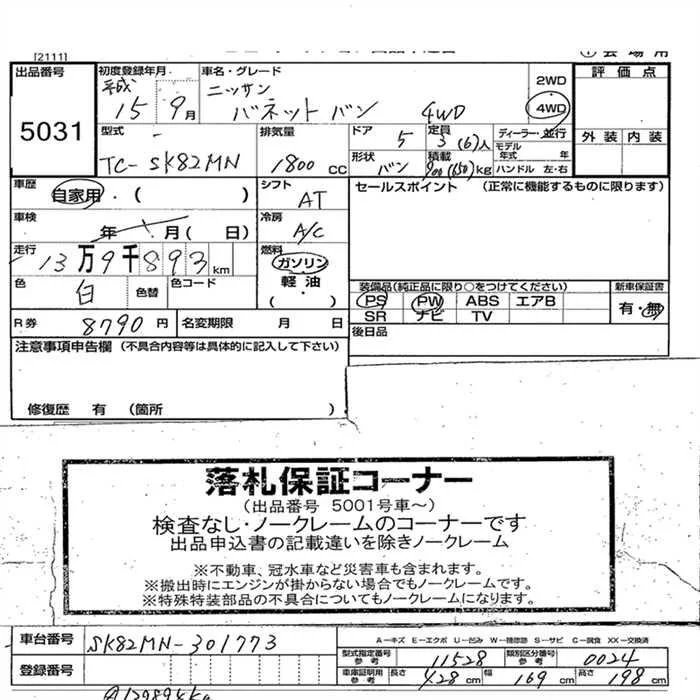 [2111]
出品番号
5031
初度登録年月
平成
15 9月
車名・グレード
ニッサン
バネット バン 4WD
2WD
4WD
評価点
外装 内装
型式
TC-SK82MN
排気量
1800 CC
ドア 5
定員 3(6)人
形状 バン
積載 900(650)kg
ディーラー・並行
モデル年式 年
ハンドル 左・右
車歴
自家用・( )
シフト
AT
セールスポイント (正常に機能するものに限ります)
車検
年 月( 日)
冷房
A/C
走行
13万9千893km
燃料
ガソリン
軽油
( ・ )
色
白
色替
色コード
装備品(純正品に限り○をつけてください)
新車保証書
PS PW ABS エアB
有・無
SR ナビ TV
R券 8790円
名変期限 月 日
後日品
注意事項申告欄(不具合内容等は具体的に記入して下さい)
修復歴 有 (箇所 )
落札保証コーナー
(出品番号 5001号車~)
検査なし・ノークレームのコーナーです
出品申込書の記載違いを除きノークレーム
※不動車、冠水車など災害車も含まれます。
※搬出時にエンジンが掛からない場合でもノークレームです。
※特殊特装部品の不具合についてもノークレームになります。
車台番号 SK82MN-301773
A-キズ E-エクボ U-凹み W-補修跡 S-サビ C-腐食 XX-交換済
型式指定番号
参考
11528
類別区分番号
参考
0024
登録番号
車庫証明用
参考
長さ 428cm 幅 169cm 高さ 198cm